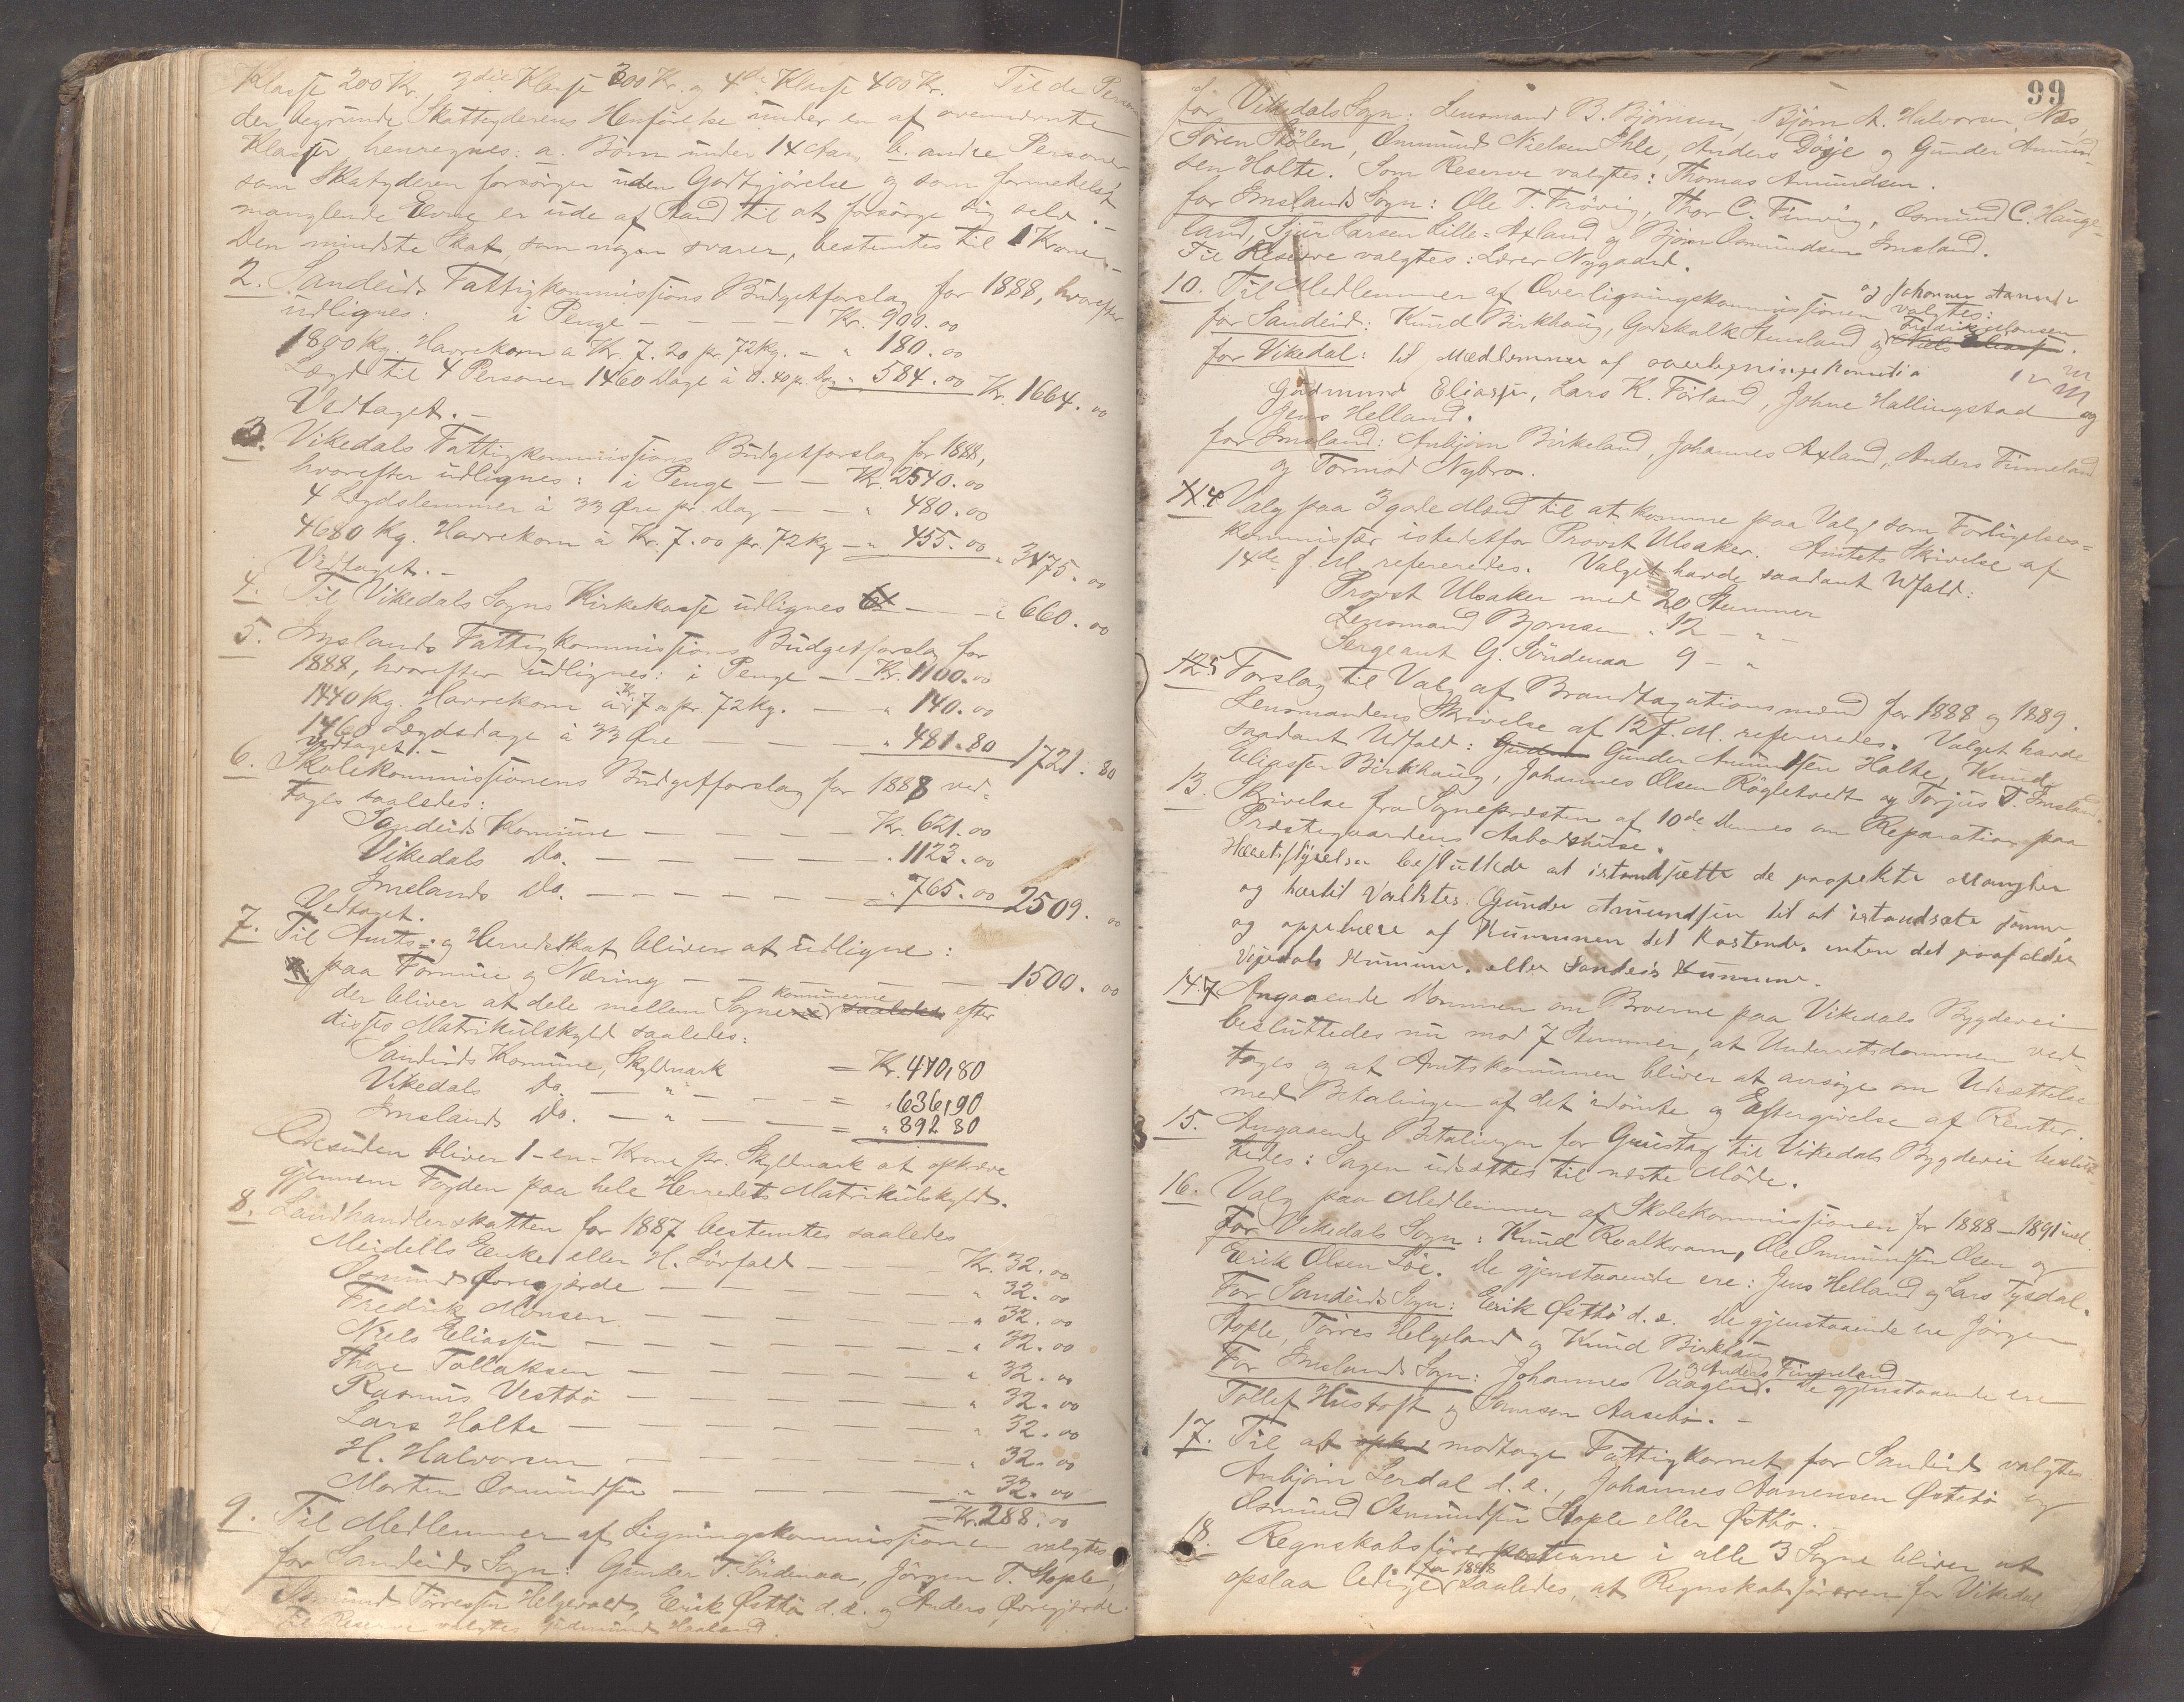 Klasse 200 Kr., 3die Klasse 300 Kr. og 4de Klasse 400 Kr. Til de Personer
der begrunde Skatteyderens Henförelse under en af ovennævnte
Klasser henregnes: a. Börn under 14 Aar, b. andre Personer
som Skatyderen forsörger uden Godtgjörelse og som formedelst
manglende Evne er ude af Stand til at forsörge sig selv.-
Den mindste Skat, som nogen svarer, bestemtes til 1 Krone.-
2. Sandeids Fattigkommissions Budgetforslag for 1888, hvorefter
udlignes: i Penge - - - - Kr. 900.00
1800 Kg. Havrekorn a Kr. 7.20 pr. 72 Kg. - " 180.00
Lægd til 4 Personer 1460 Dage à 0.40 pr. Dag " 584.00 Kr. 1664.00
Vedtaget.-
3. Vikedals Fattigkommissions Budgetforslag for 1888,
hvorefter udlignes: i Penge - - Kr. 2540.00
4 Lægdslemmer à 33 Øre pr. Dag - - " 480.00
4680 Kg. Havrekorn à Kr. 7.00 pr. 72 Kg - " 455.00 " 3475.00
Vedtaget.-
4. Til Vikedals Sogns Kirkekasse udlignes - - " 660.00
5. Imslands Fattigkommissions Budgetforslag for
1888, hvorefter udlignes: i Penge - Kr. 1100.00
1440 Kg. Havrekorn à Kr. 7 " pr. 72 Kg. - " 140.00
1460 Lægdsdage à 33 Øre - - - " 481.80 1721.80
Vedtaget.-
6. Skolekommissionens Budgetforslag for 1888 ved-
toges saaledes:
Sandeids Komune - - - - Kr. 621.00
Vikedals Do. - - - - - " 1123.00
Imslands Do. - - - - - " 765.00 2509.00
Vedtaget.
7. Til Amts- og Herredskat bliver at udligne:
paa Formue og Næring - - - - - 1500.00
der bliver at dele mellem Sogne komunerne saaledes efter
disses Matrikulskyld saaledes:
Sandeids Komune, Skyldmark = Kr. 470,80
Vikedals Do. - " - - - = " 636,90
Imslands Do. - " - - - = " 892 80
Desuden bliver 1-en-Krone pr. Skyldmark at opkræve
gjennem Fogden paa hele Herredets Matrikulskyld.
8. Landhandlerskatten for 1887 bestemtes saaledes
Meidells Enke eller H. Sörfald - - - Kr. 32.00
Osmund Øvregjerde - - - - - " 32.00
Fredrik Monsen - - - - - " 32.00
Niels Eliassen - - - - - " 32.00
Thore Tollaksen - - - - - " 32.00
Rasmus Vestbö - - - - - " 32.00
Lars Holte - - - - - " 32.00
H. Halvorsen - - - - - " 32.00
Morten Osmundsen - - - - " 32.00
= Kr. 288.00
9. Til Medlemmer af Ligningskommissionen valgtes
for Sandeids Sogn: Gunder T. Söndenaa, Jörgen T. Stople,
Osmund Törressen Helgevold, Eerik Østbö d.æ. og Anders Øvregjerde.
Til Reserve valgtes Gudmund Haaland.
99
for Vikedals Sogn: Lensmand B. Björnsen, Björn A. Halvorsen Næs,
Sören Stölen, Ommund Nielsen Ihle, Anders Döyje og Gunder Amund-
sen Holte. Som Reserve valgtes: Thomas Amundsen.
for Imslands Sogn: Ole T. Frövig, Thor C. Finvig, Osmund C. Hauge-
land, Sjur Larsen Lille-Axland og Björn Osmundsen Imsland.
Til Reserve valgtes: Lærer Nygaard.
10. Til Medlemmer af Overligningskommissionen valgtes:
og Johannes
for Sandeid: Knud Birkhaug, Godskalk Stensland og Niels Eliassen.
Fredrik Monsen
for Vikedal: til Medlemmer af
Gudmund Eliassen, Lars K. Förland, Johne Hallingstad og
Jens Helland.
for Imsland: Anbjörn Birkeland, Johannes Axland, Anders Finneland
og Tormod Nybro.
14 Valg paa 3 gode Mænd til at komme paa Valg som Forligelses-
kommissær istedetfor Provst Ulsaker. Amtets Skrivelse af
14de f. M. refereredes. Valget havde saadant Udfald:
Provst Ulsaker med 20 Stemmer
Lensmand Björnsen " 12 - " -
Sergeant G. Söndenaa 9 - "
125 Forslag til Valg af Brandtaxationsmænd for 1888 og 1889.
Lensmandens Skrivelse af 12 f. M. refereredes. Valget havde
saadant Udfald: Gunder Amundsen Holte, Knud
Eliassen Birkhaug, Johannes Olsen Rögletvedt og Torjus T. Imsland.
13. Skrivelse fra Sognepresten af 10de dennes om Reparation paa
Prestegaardens Aabodshuse.
Herretsstyrelsen besluttede at istandsætte de paapekte Mangler
og hertil Valktes Gunder Amundsen til at istandsæte samme,
og oppebære af Kummunen det Kostende. enten det paafalder
Vikedals Kumune. eller Sandeids Kumune.
14.7 Angaaende Dommen om Broerne paa Vikedals Bygdevei
besluttedes nu mod 7 Stemmer, at Underretsdommen ved-
toges og at Amtskomunen bliver at ansöge om Udsættelse
med Betalingen af det idömte og Eftergivelse af Renter.
15. Angaaende Betalingen for Grustag til Vikedals Bygdevei beslut-
tedes: Sagen udsættes til næste Möde.
16. Valg paa Medlemmer af Skolekommissionen for 1888-1891 incl.
For Vikedals Sogn: Knud Roalkvam, Ole Ommundsen Olsen og
Eerik Olsen Löe. De gjenstaaende ere: Jens Helland og Lars Tysdal.
For Sandeids Sogn: Eerik Østbö d.æ. De gjenstaaende ere Jörgen
Stople, Törres Helgeland og Knud Birkhaug
For Imslands Sogn: Johannes Vaagen. og Anders Finneland De gjenstaaende ere
Tollef Hustoft og Samson Aasebö.-
17. Til at modtage Fattigkornet for Sandeid valgtes
Anbjörn Lerdal d.æ., Johannes Aanensen Østebö og
Osmund Osmundsen Stople eller Østbö.-
18. Regnskabsförerposterne i alle 3 Sogne bliver at
opslaa ledige for 1888 saaledes, at Regnskabsföreren for Vikedal